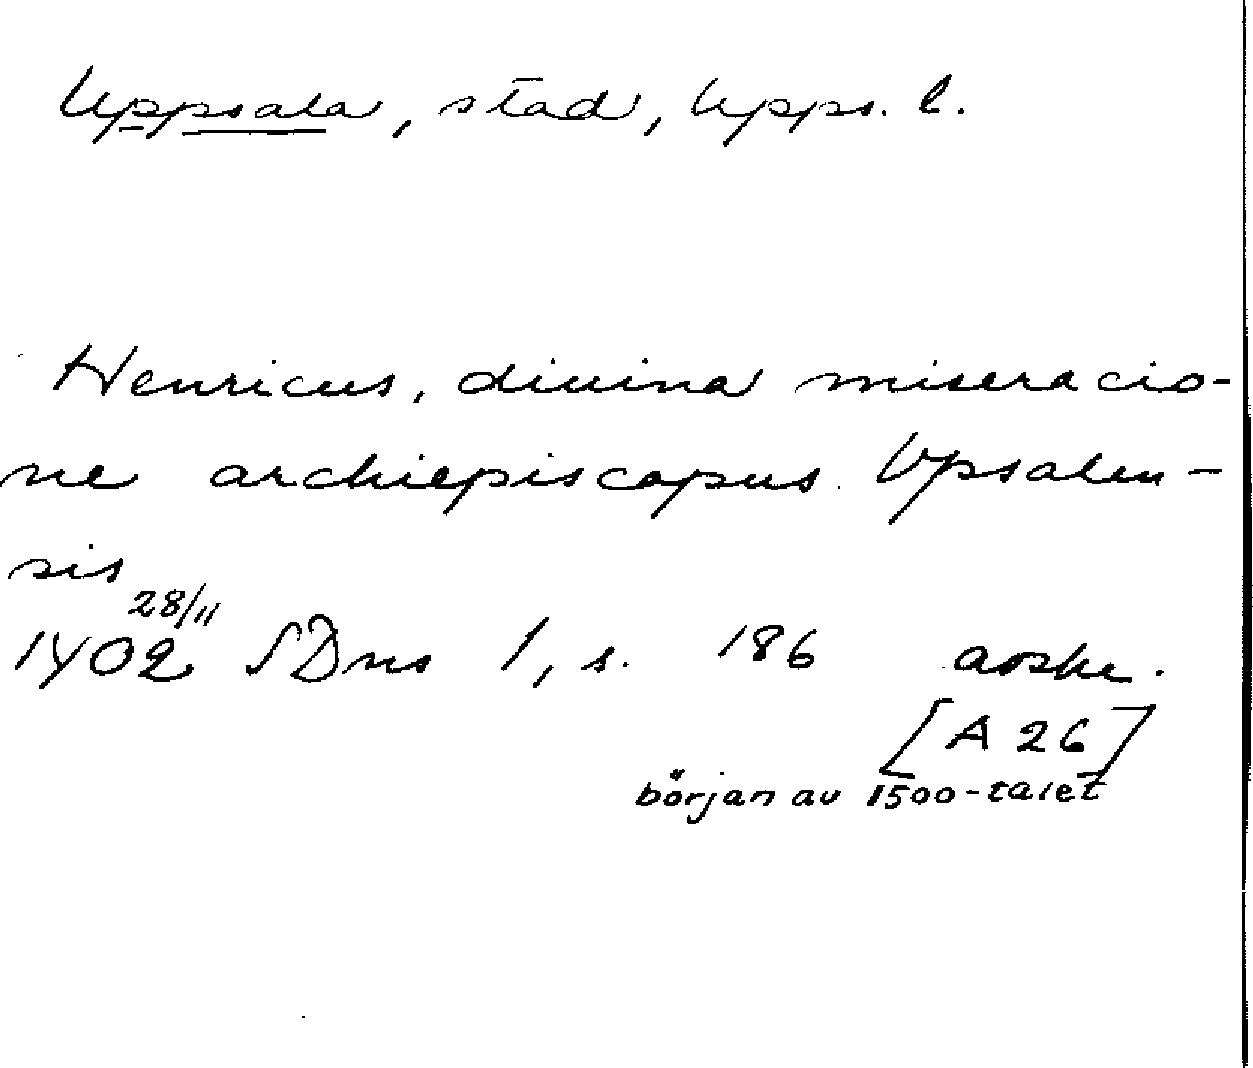 Uppsala, stad, Upps. l.
Henricus, diuina miseracio-
ne archiepiscopus Vpsalen-
sis
28/11
1402 SDns 1, s. 186 avskr.
[A 26]
början av 1500-talet